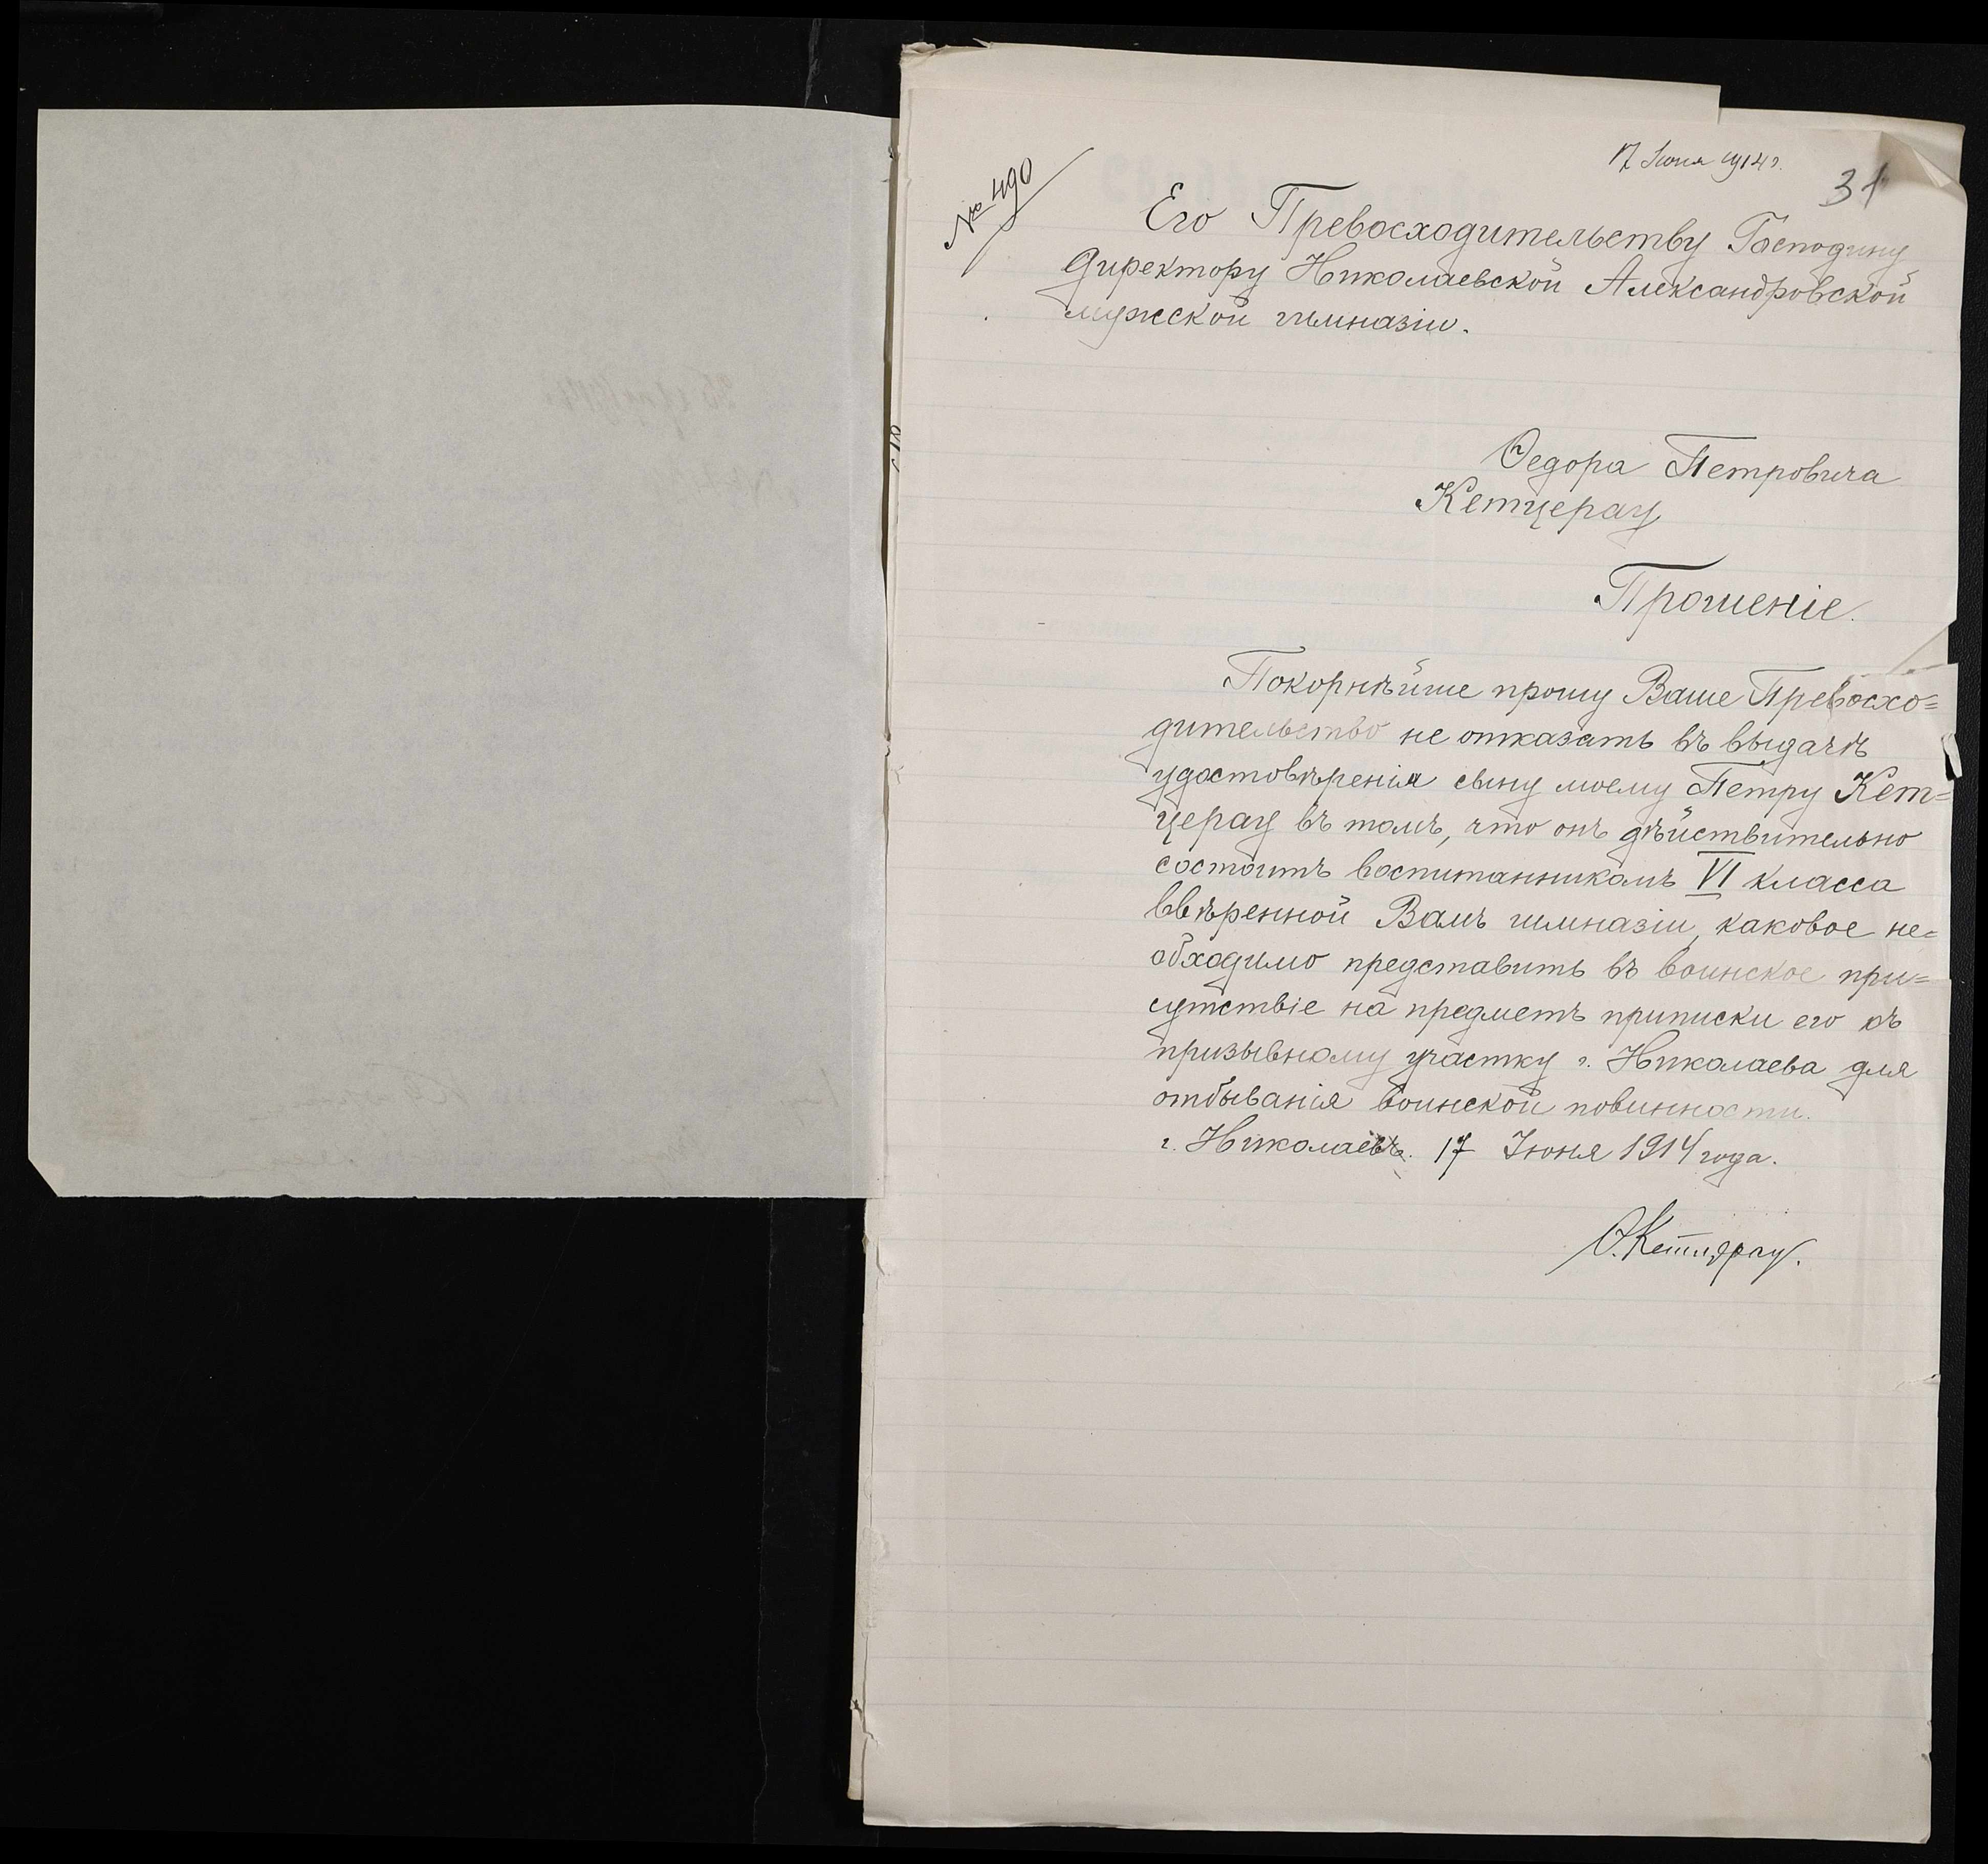 17 Июня 1914 г.
31
№ 490
Его Превосходительству Господину
Директору Николаевской Александровской
мужской гимназіи.
Ѳедора Петровича
Кетцерау
Прошеніе.
Покорнѣйше прошу Ваше Превосхо=
дительство не отказать въ выдачѣ
удостовѣренія сыну моему Петру Кет=
церау въ томъ, что онъ дѣйствительно
состоитъ воспитанникомъ VI класса
ввѣренной Вамъ гимназіи, каковое не=
обходимо представить въ воинское при=
сутствіе на предметъ приписки его къ
призывному участку г. Николаева для
отбыванія воинской повинности.
г. Николаевъ. 17 Июня 1914 года.
Ѳ. Кетцерау.